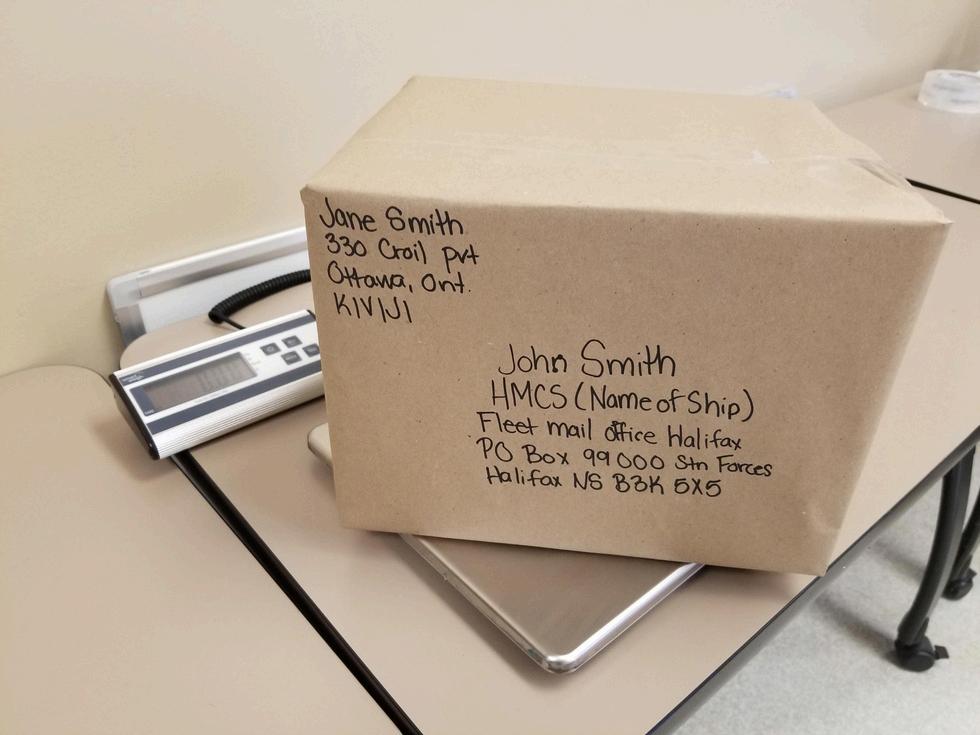 Jane Smith
330 Croil pvt
Ottawa, Ont.
K1V1J1
John Smith
HMCS (Name of Ship)
Fleet mail office Halifax
PO Box 99000 Stn Forces
Halifax NS B3K 5X5